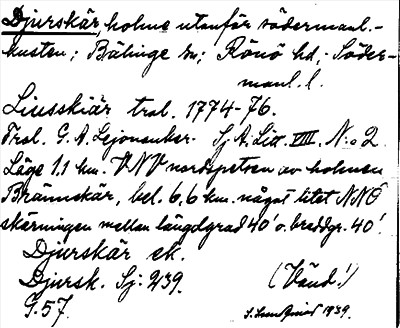 Djurskär, holme utanför södermanl.-
kusten; Bälinge sn; Rönö hd; Söder-
manl. l.
Liusskiär tral. 1774-76.
Tral. G. A. Lejonanker. Sj. A. Litt. VIII. N:o 2
Läge 1.1 km. VNV nordspetsen av holmen
Brännskär, bel. 6.6 km. något litet NNÖ
skärningen mellan längdgrad 40' o. breddgr. 40'.
Djurskär ek.
Djursk. Sj: 239. (Vänd!)
G. 57. 1939.